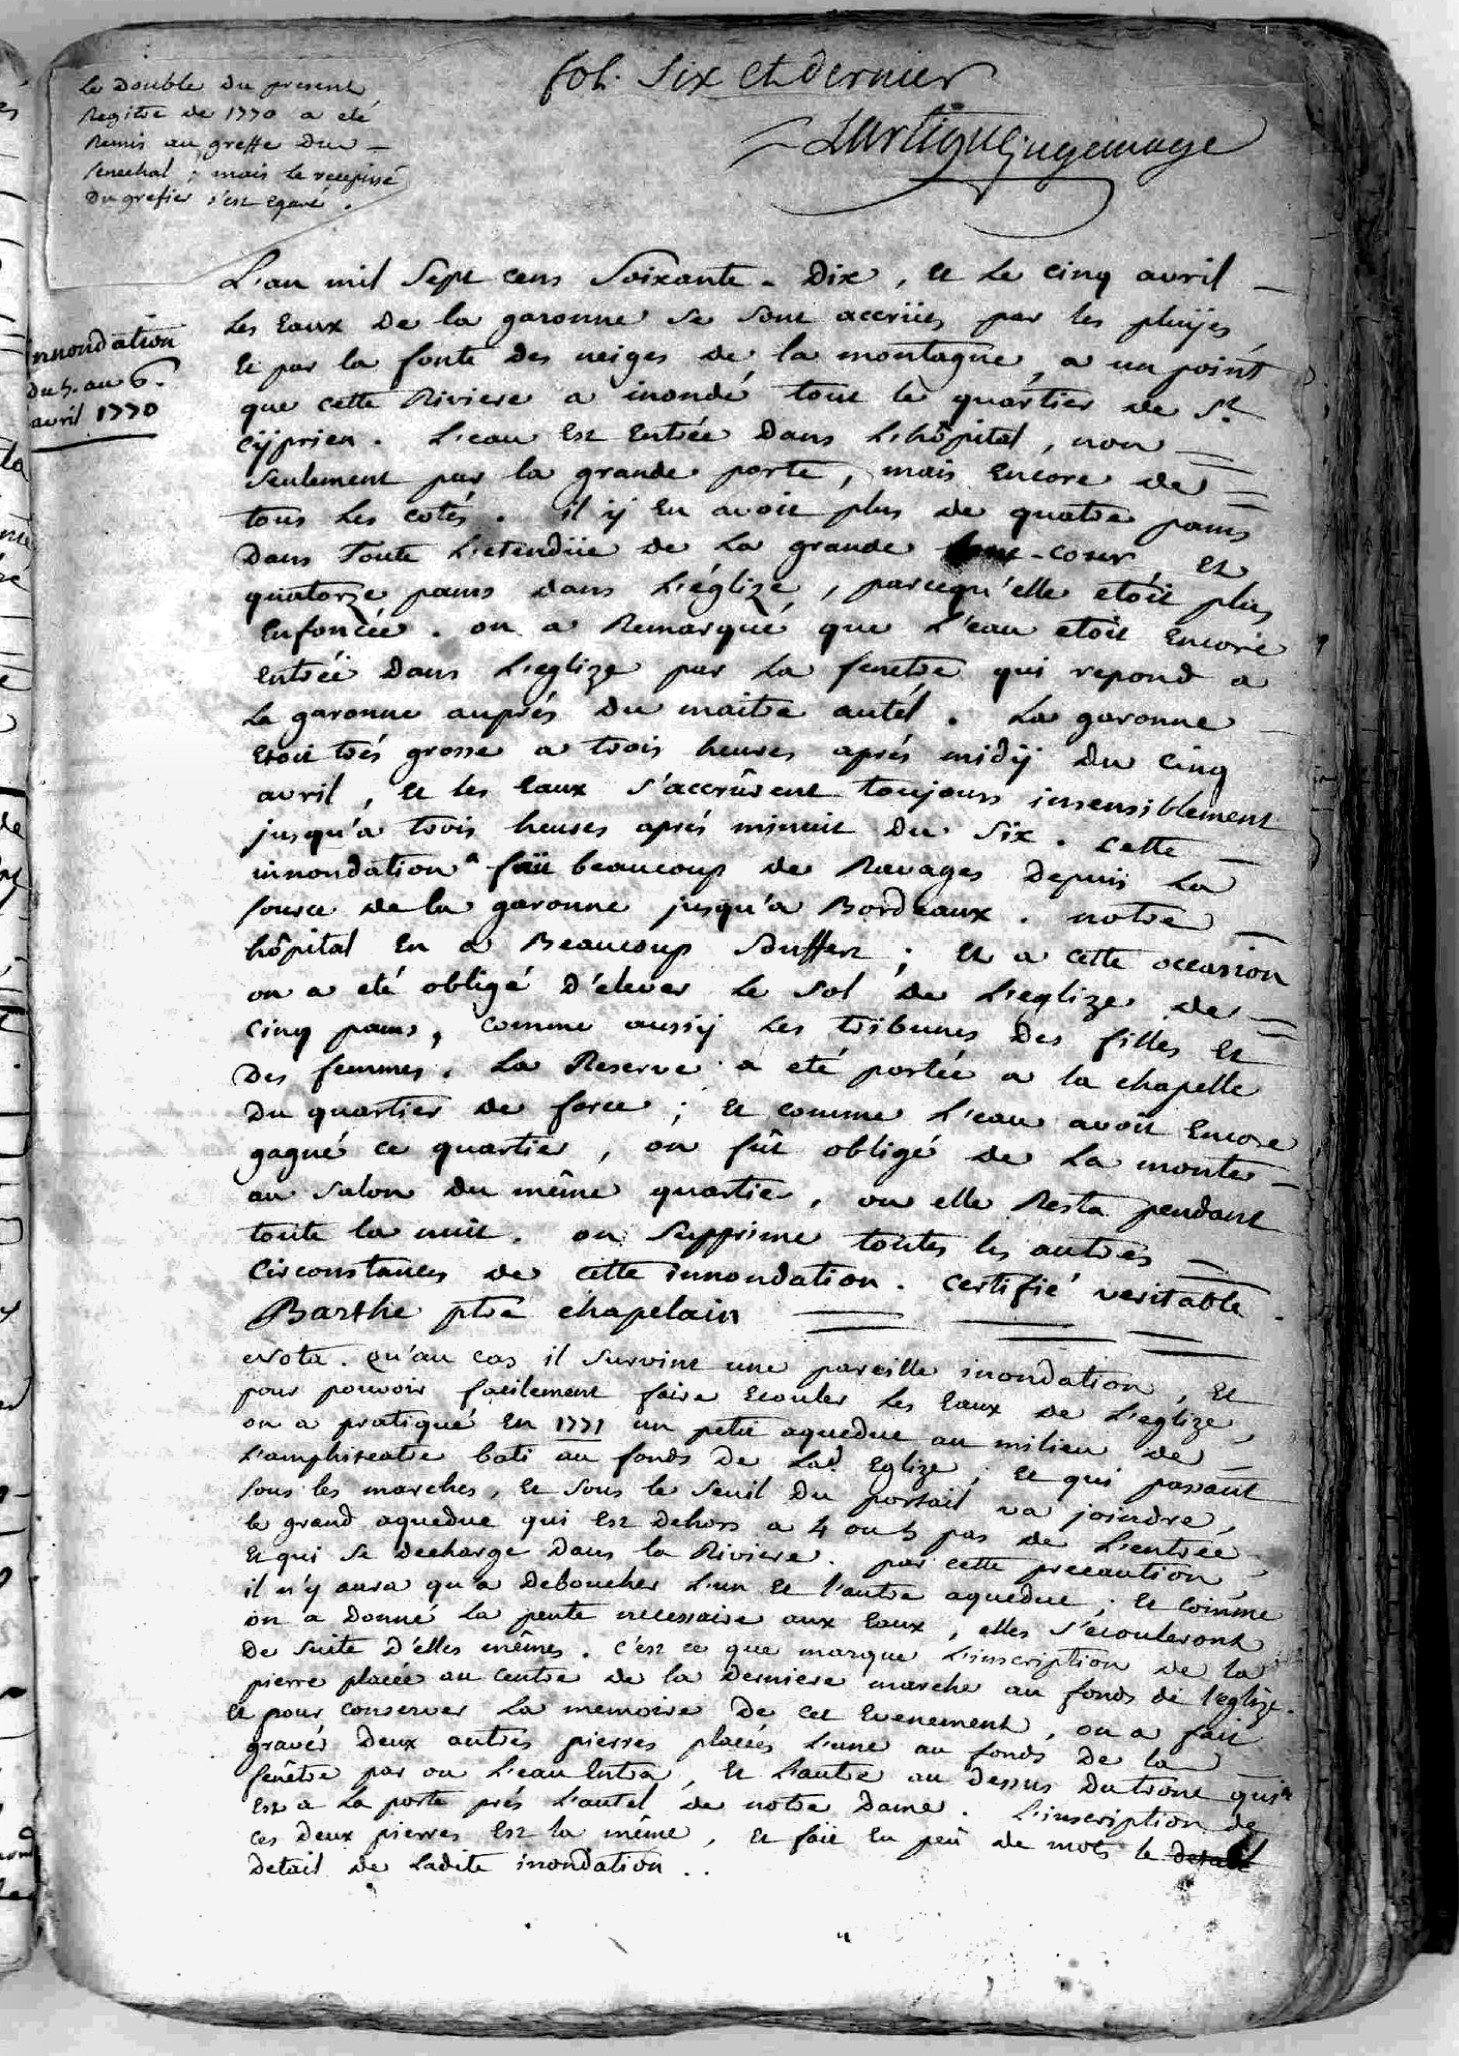 fol. Six et dernier
Lartigue jugemage
Le Double Du present
Registre de 1770 a eté
Remis au greffe Du
Senechal ; mais le recepissé
Du grefier s'est Egaré .
innondation
Du 5. au 6.
avril 1770
L'an mil Sept cens Soixante - Dix , et Le cinq avril
Les Eaux De la garonne se sont accrües par les pluyes
Et par la fonte des neiges de la montagne , a un point
que cette Riviere a inondé tout le quartier de St.
Cyprien . L'eau Est Entrée Dans L'hôpital , non
seulement par la grande porte , mais Encore de
tous Les cotés . il y En avoit plus de quatre pams
Dans Toute L'etendüe de La grande -cour , Et
quatorze pams dans L'églize , parcequ'elle etoit plus
Enfoncée . on a Remarqué que L'eau etoit Encore
Entrée Dans L'eglize par La fenetre qui repond a
La garonne auprés Du maitre autél . La garonne
Etoit trés grosse a trois heures aprés midy Du Cinq
avril , Et les Eaux s'accrûrent toujours insensiblement
jusqu'a trois heures aprés minuit Du Six . Cette
innondation a fait beaucoup de Ravages Depuis La
source de la garonne jusqu'a Bordeaux . notre
hôpital En a Beaucoup Souffert ; Et a cette occasion
on a eté obligé D'élever Le Sol de L'eglize de
Cinq pams , comme aussy Les tribunes Des filles Et
Des femmes . La Reserve a eté portée a la chapelle
Du quartier de force ; Et comme L'eau avoit Encore
gagné ce quartier , on fût obligé de La monter
au salon du même quartier , ou elle Resta pendant
toute la nuit . on Supprime toutes les autres
Circonstances de cette innondation . Certifié veritable .
Barthe ptre chapelain
Nota . Qu'au cas il Survint une pareille inondation , Et
pour pouvoir facilement faire Ecouler Les Eaux de L'eglize ,
on a pratiqué En 1771 un petit aqueduc au milieu de
L'amphiteatre bati au fonds De Lad. Eglize ; Et qui passant
Sous les marches , Et Sous le Seuil Du portail va joindre ,
le grand aqueduc qui Est Dehors a 4 ou 5 pas de L'entrée
Et qui Se decharge Dans la Riviere . par cette precaution ,
il n'y aura qu'a Deboucher L'un Et l'autre aqueduc ; Et comme
on a Donné La pente necessaire aux Eaux , elles s'ecouleront
De Suite D'elles mêmes . C'est ce que marque L'inscription de la
pierre placée au centre de la Derniere marche au fonds de l'eglize .
Et pour conserver La memoire De cet Evenement , on a fait
graver Deux autres pierres placées L'une au fonds De la
fenêtre par ou L'eau Entra , Et L'autre au Dessus Du tronc qui
Est a La porte prés L'autel de notre Dame . L'inscription de
Ces Deux pierres Est la même , Et fait En peu de mots le detail
Detail de Ladite inondation . .